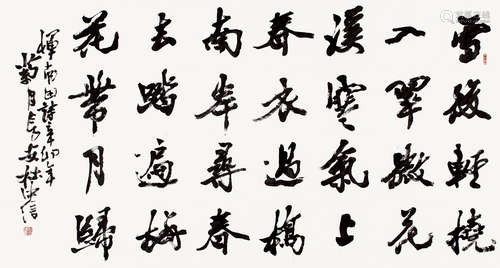 雪後輕橈
入翠微花
溪寒氣上
春衣過橋
南岸尋春
去踏遍梅
花帶月歸
惲南田詩辛卯年
菊月長安杜中信